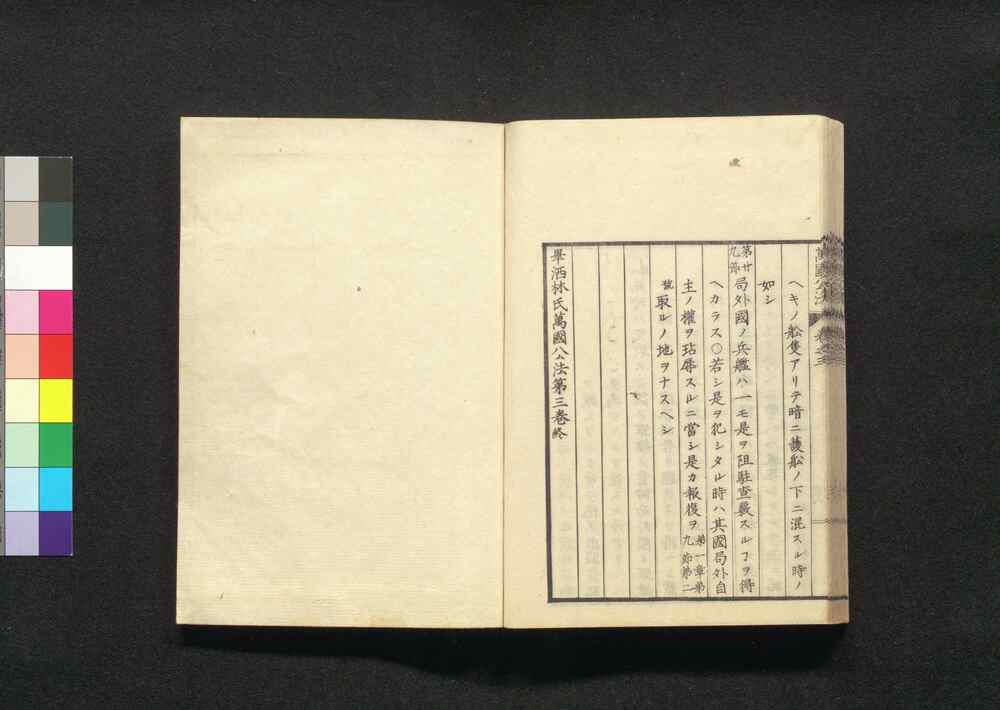 ヘキノ舩隻アリテ暗ニ護舩ノ下ニ混スル時ノ
如シ
第廿九節 局外國ノ兵艦ハ一モ是ヲ阻駐査覈スルヿヲ得
ヘカラス〇若シ是ヲ犯シタル時ハ其國局外自
主ノ權ヲ玷辱スルニ當シ是カ報復ヲ 第一章第九節第二
號 取ルノ地ヲナスヘシ
畢洒林氏萬國公法第三巻終
萬國公法